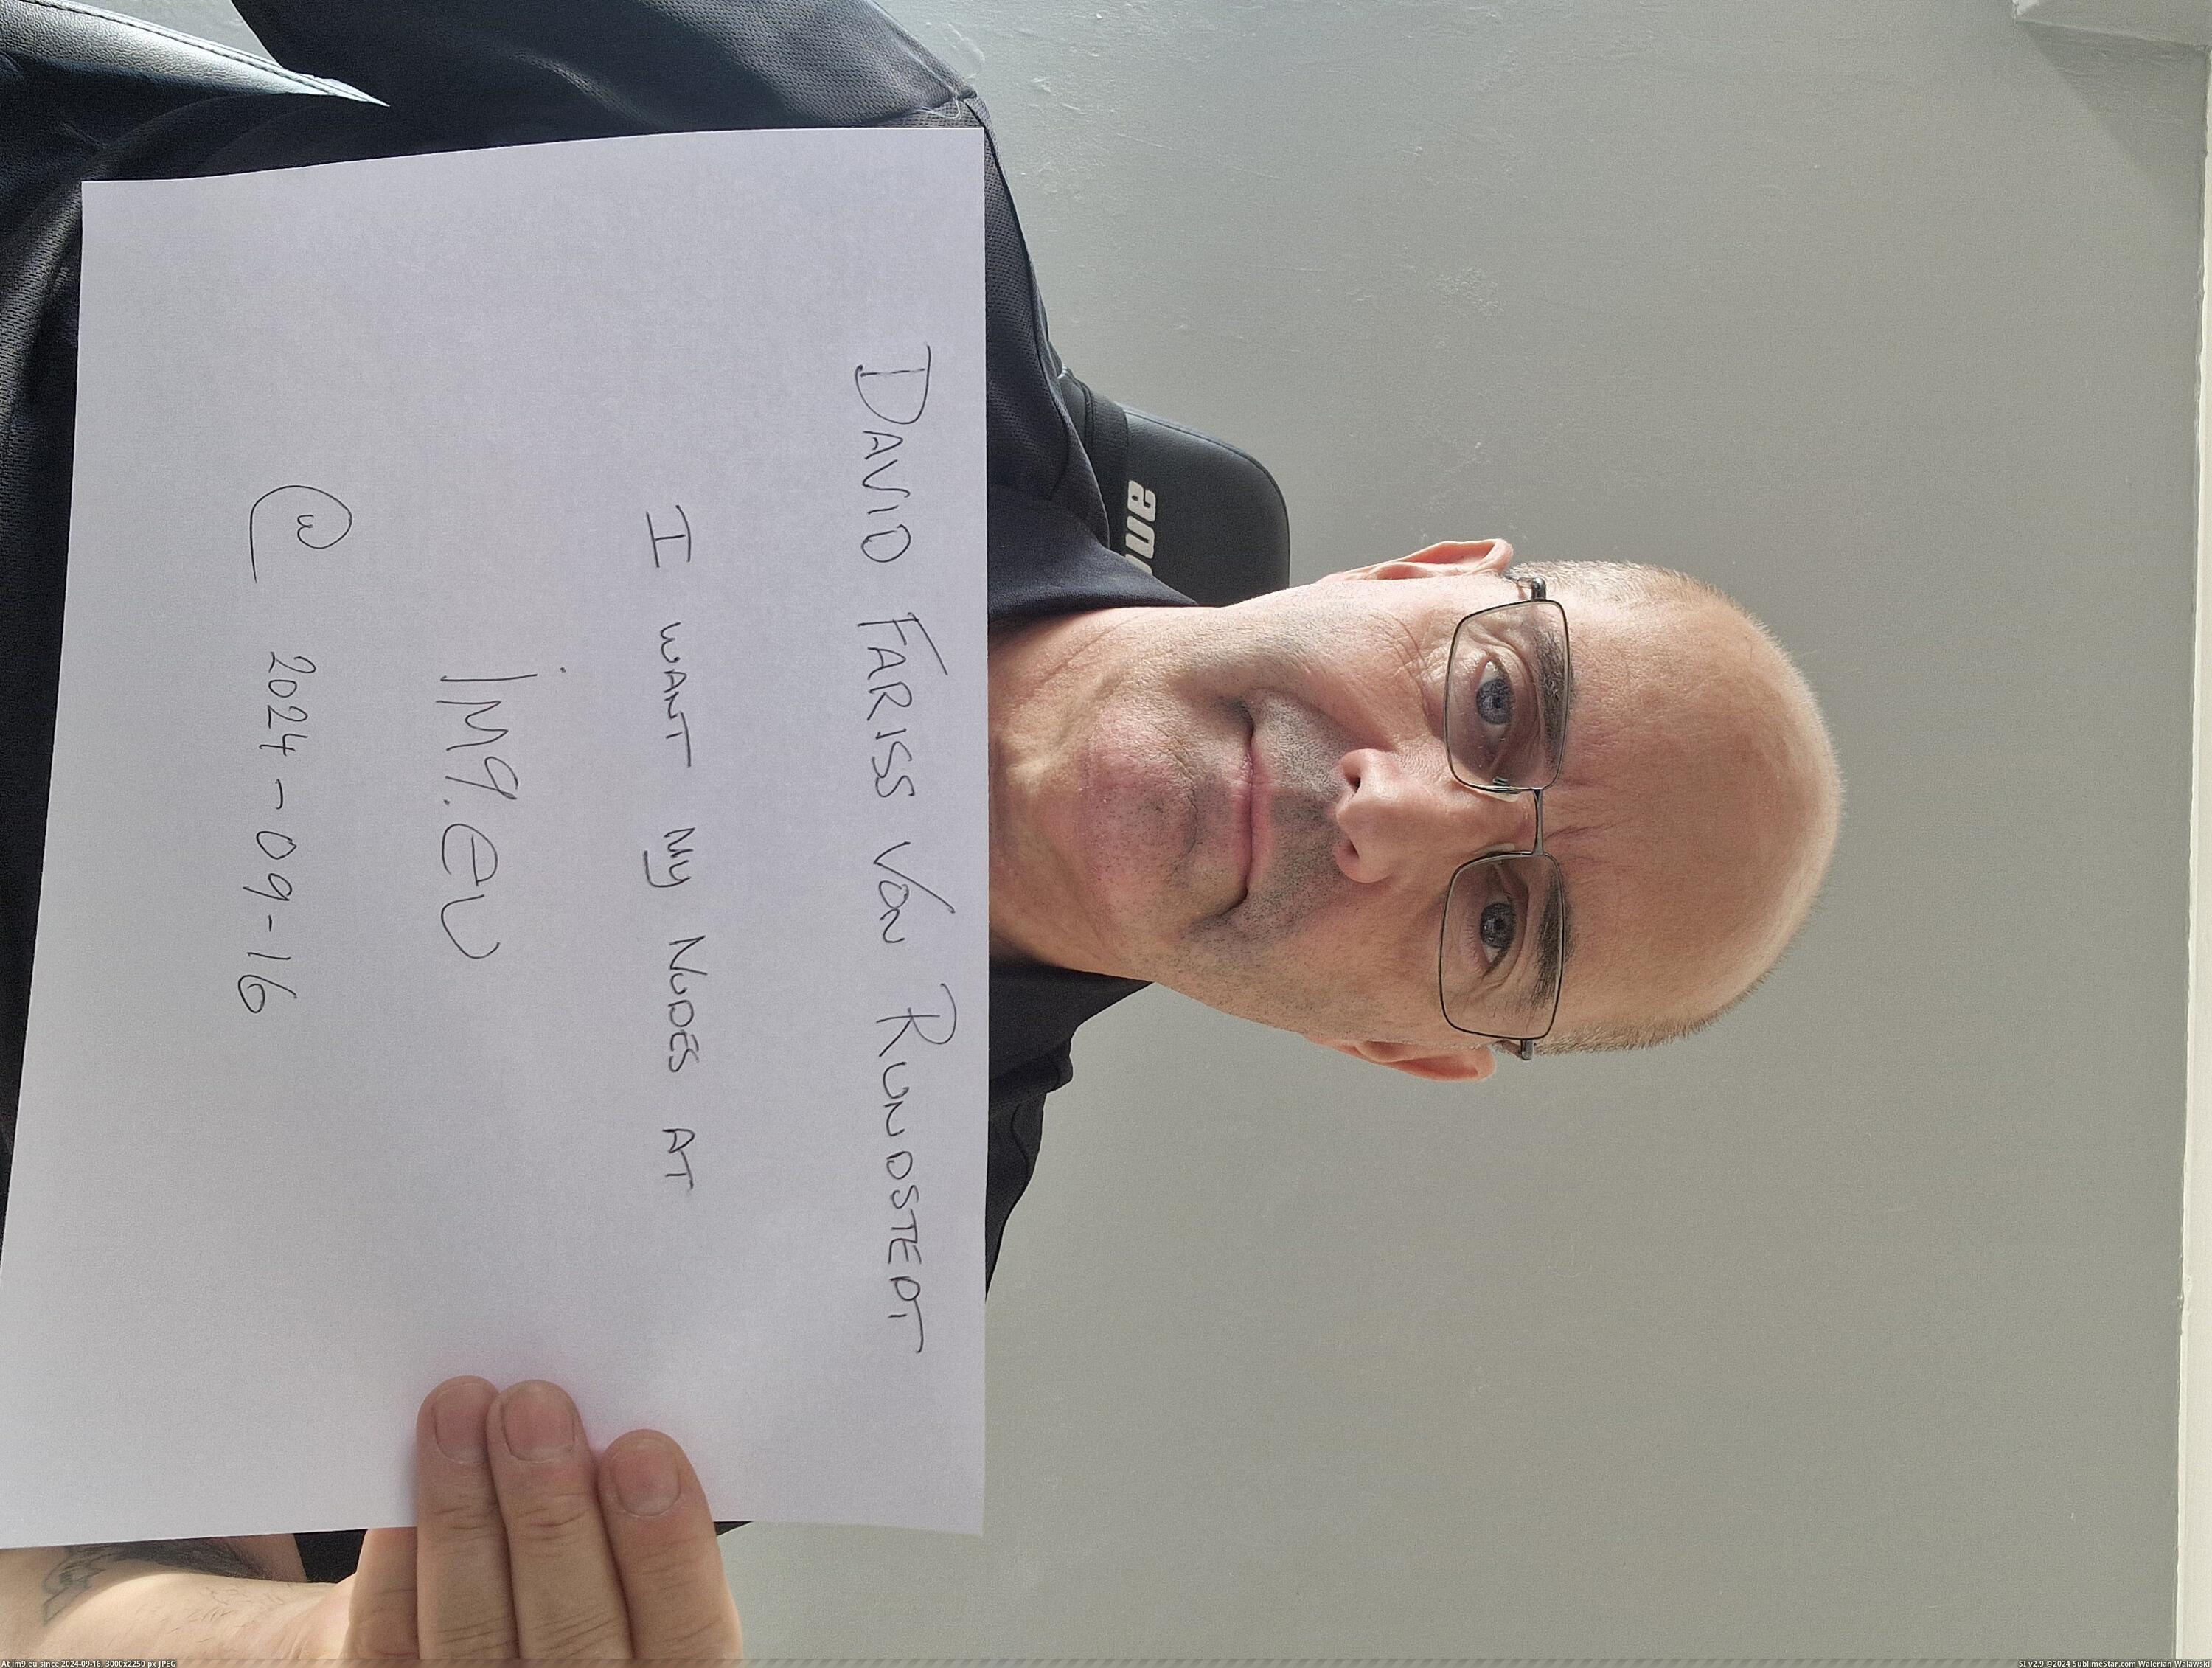 DAVID FARISS VON RUNDSTEDT
I WANT MY NUDES AT
iM9.eu
@ 2024-09-16
ano
At im9.eu since 2024-09-16, 3000x2250 px JPEG
SI v2.9 ©2024 SublimeStar.com Walerian Walawski